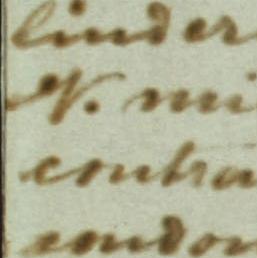 linder
N. mi
contra
condor